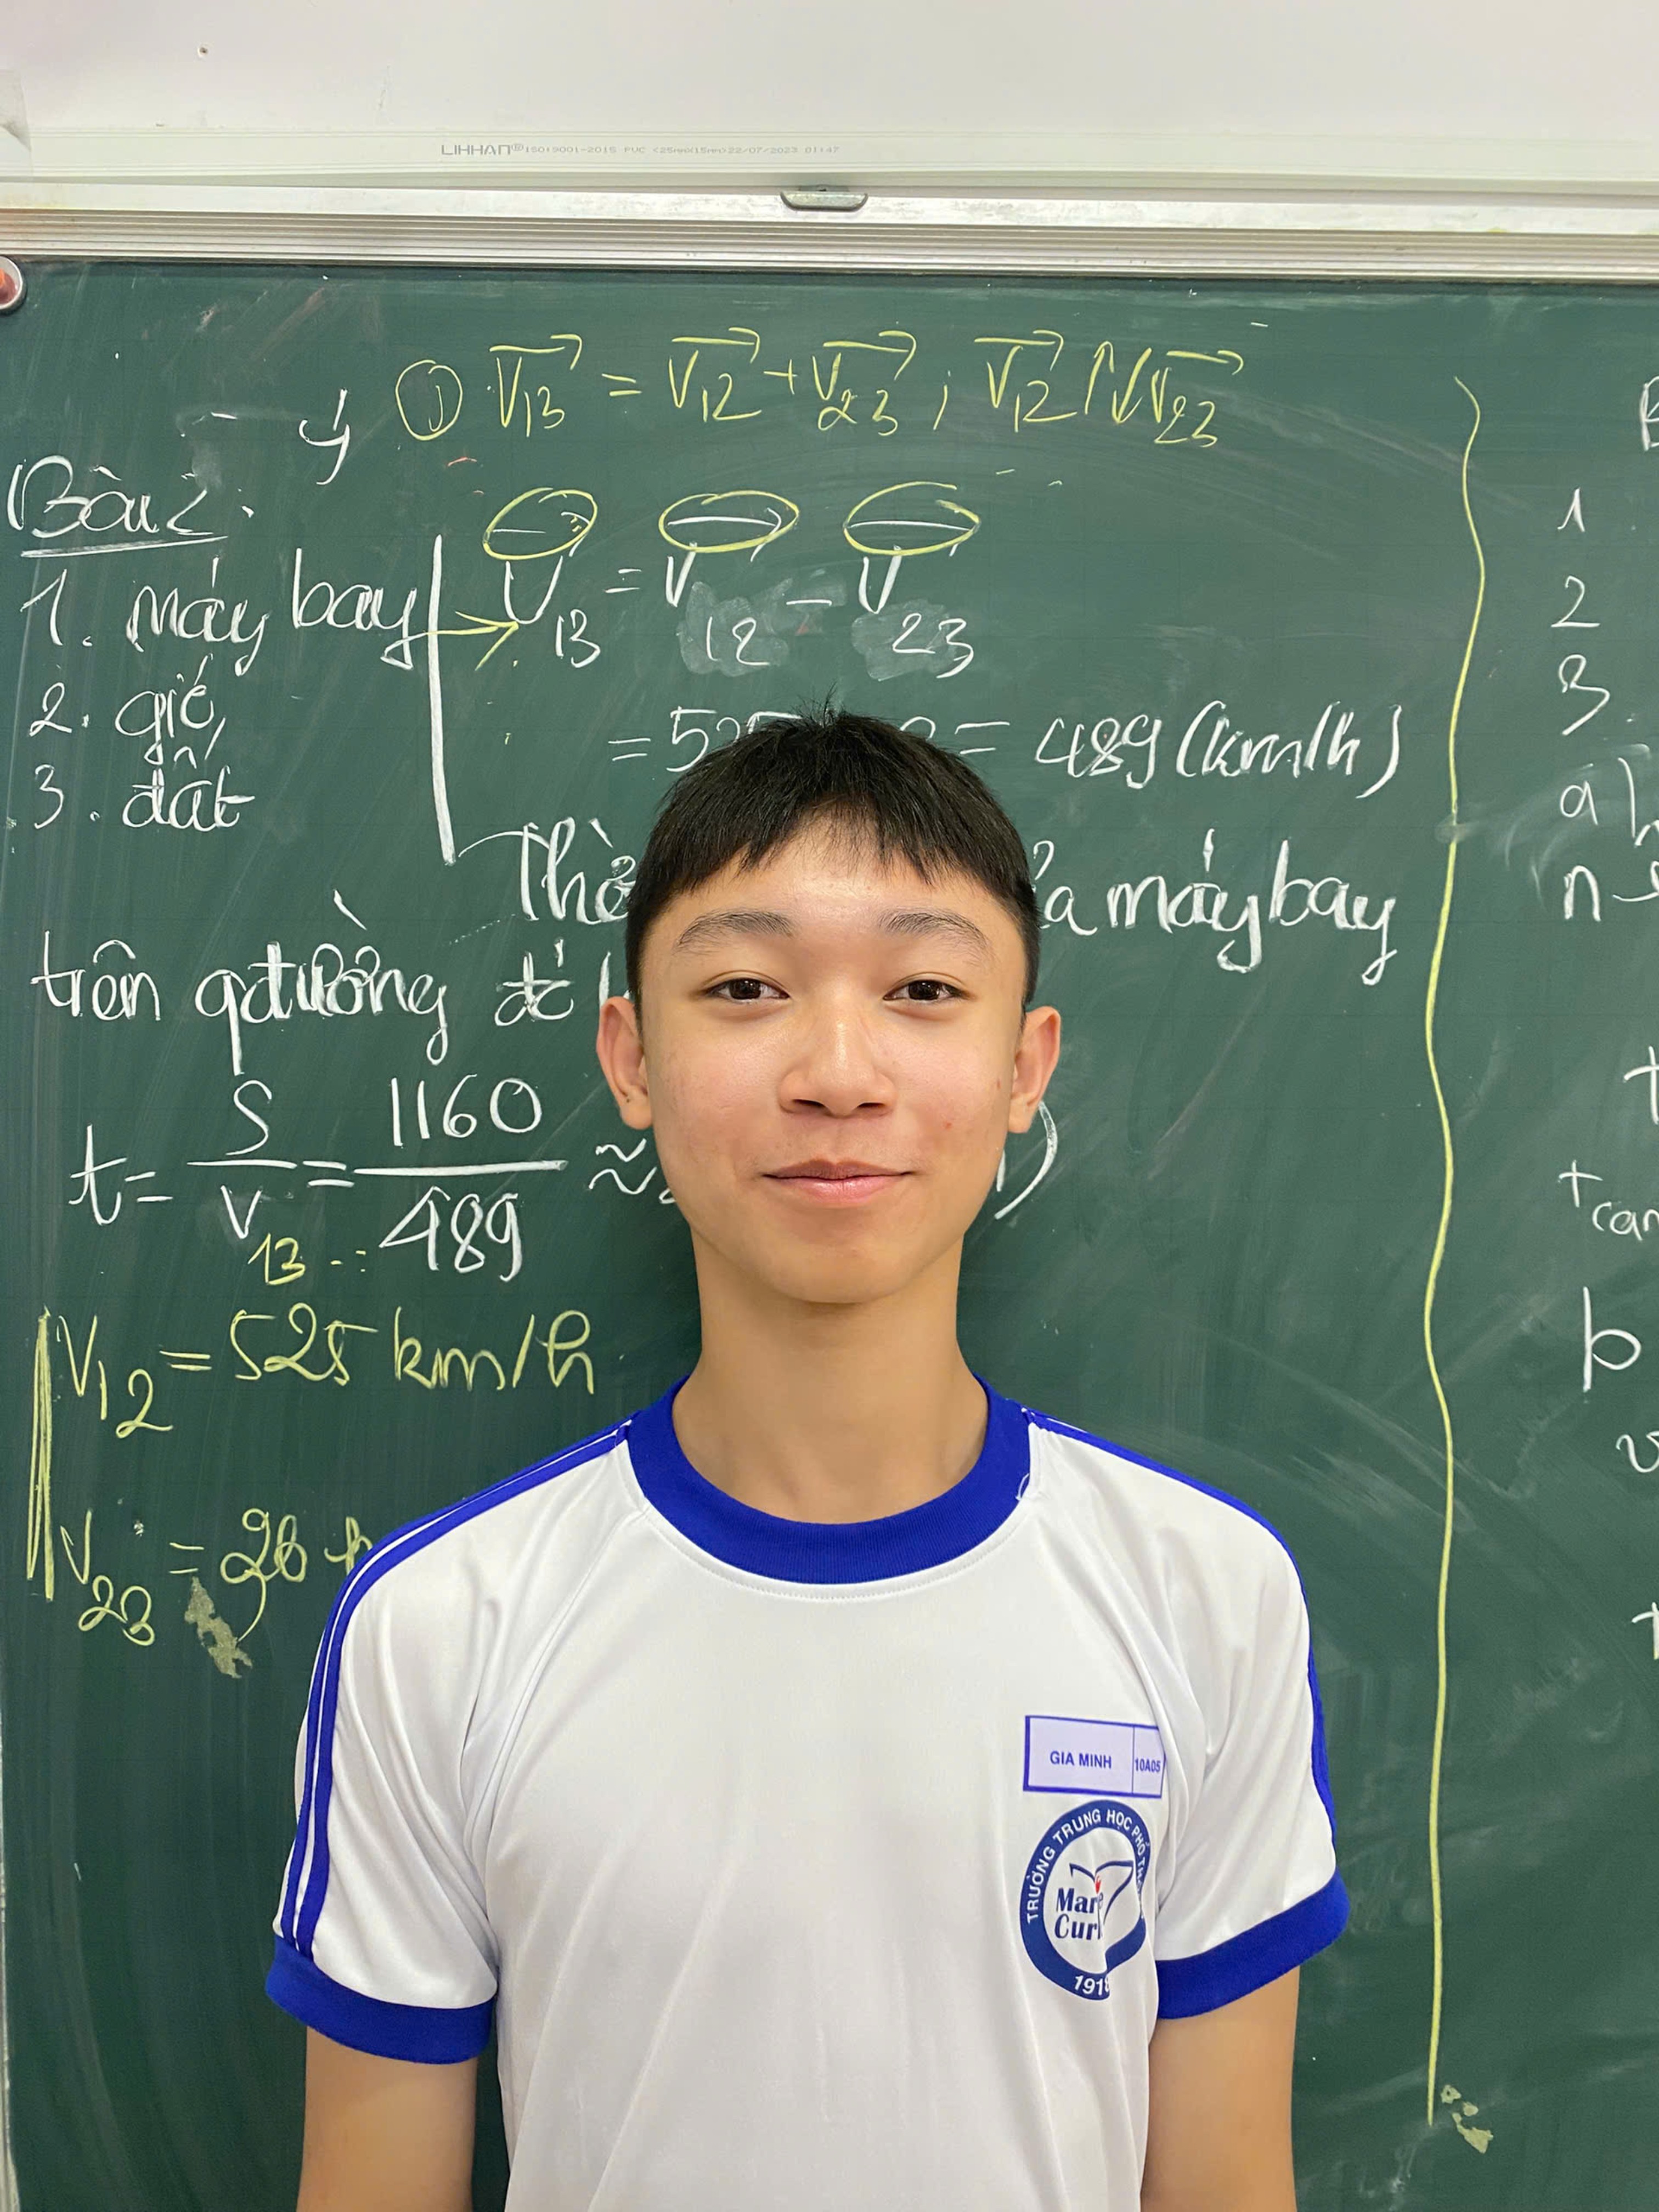 LIHHAN® ISO:9001-2015 PVC <25mmX15mm>22/07/2023 01:47
ý ① V₁₃ = V₁₂ + V₂₃ ; V₁₂ ↑↓ V₂₃
Bài 2:
1. máy bay
2. gió
3. đất
V₁₃ = V₁₂ - V₂₃
= 489 (km/h)
máy bay
trên qđường
t = S/V₁₃ = 1160/489 ≈
V₁₂ = 525 km/h
V₂₃ =
1
2
3.
a)
b
GIA MINH 10A05
TRƯỜNG TRUNG HỌC PHỔ
1918